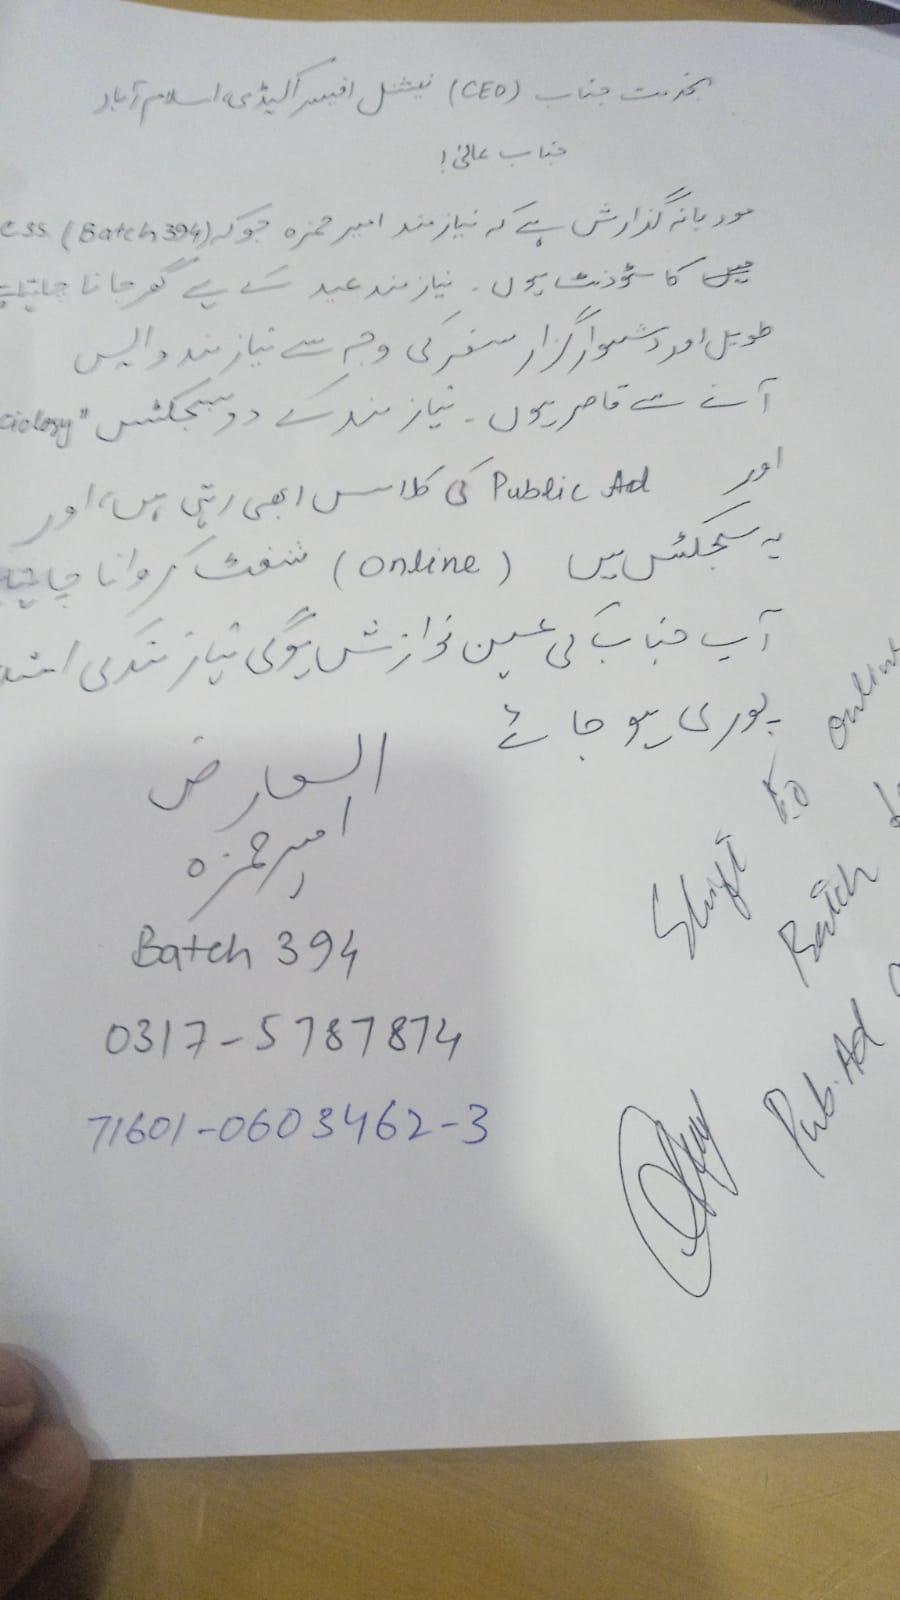 بخدمت جناب (CEO) نیشنل افیسر اکیڈمی، اسلام آباد
جناب عالی!
مودبانہ گذارش ہے کہ نیازمند امیر حمزہ جو کہ CSS (Batch 394)
میں کا سٹوڈنٹ ہوں۔ نیازمند عید کے لیے گھر جانا چاہتا ہے
طویل اور دشوار گزار سفر کی وجہ سے نیازمند واپس
آنے سے قاصر ہوں۔ نیازمند کے دو سبجکٹس ciology"
اور Public Ad کی کلاسس ابھی رہتی ہیں، اور
یہ سبجکٹس میں (online) شفٹ کروانا چاہتا
آپ جناب کی عین نوازش ہوگی نیازمند کی
پوری ہو جائے
العارض
امیر حمزہ
Batch 394
0317-5787874
71601-0603462-3
Shift to online
Batch
Pub. Ad